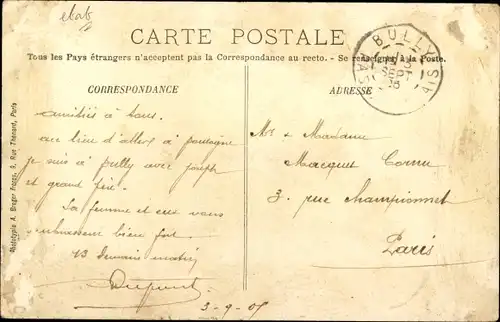 etab
CARTE POSTALE
Tous les Pays étrangers n'acceptent pas la Correspondance au recto. - Se renseigner à la Poste.
BULLY
SEPT
CORRESPONDANCE
ADRESSE
amitiés à tous.
au lieu d'aller à
je suis à bully avec joseph
et grand père.
La femme et eux vous
embrassent bien fort.
13 demain matin
Dupont
3-9-05
Mr & Madame
Macquet Cornu
3, rue Championnet
Paris
Phototypie A. Breger Frères, 9, Rue Thénard, Paris